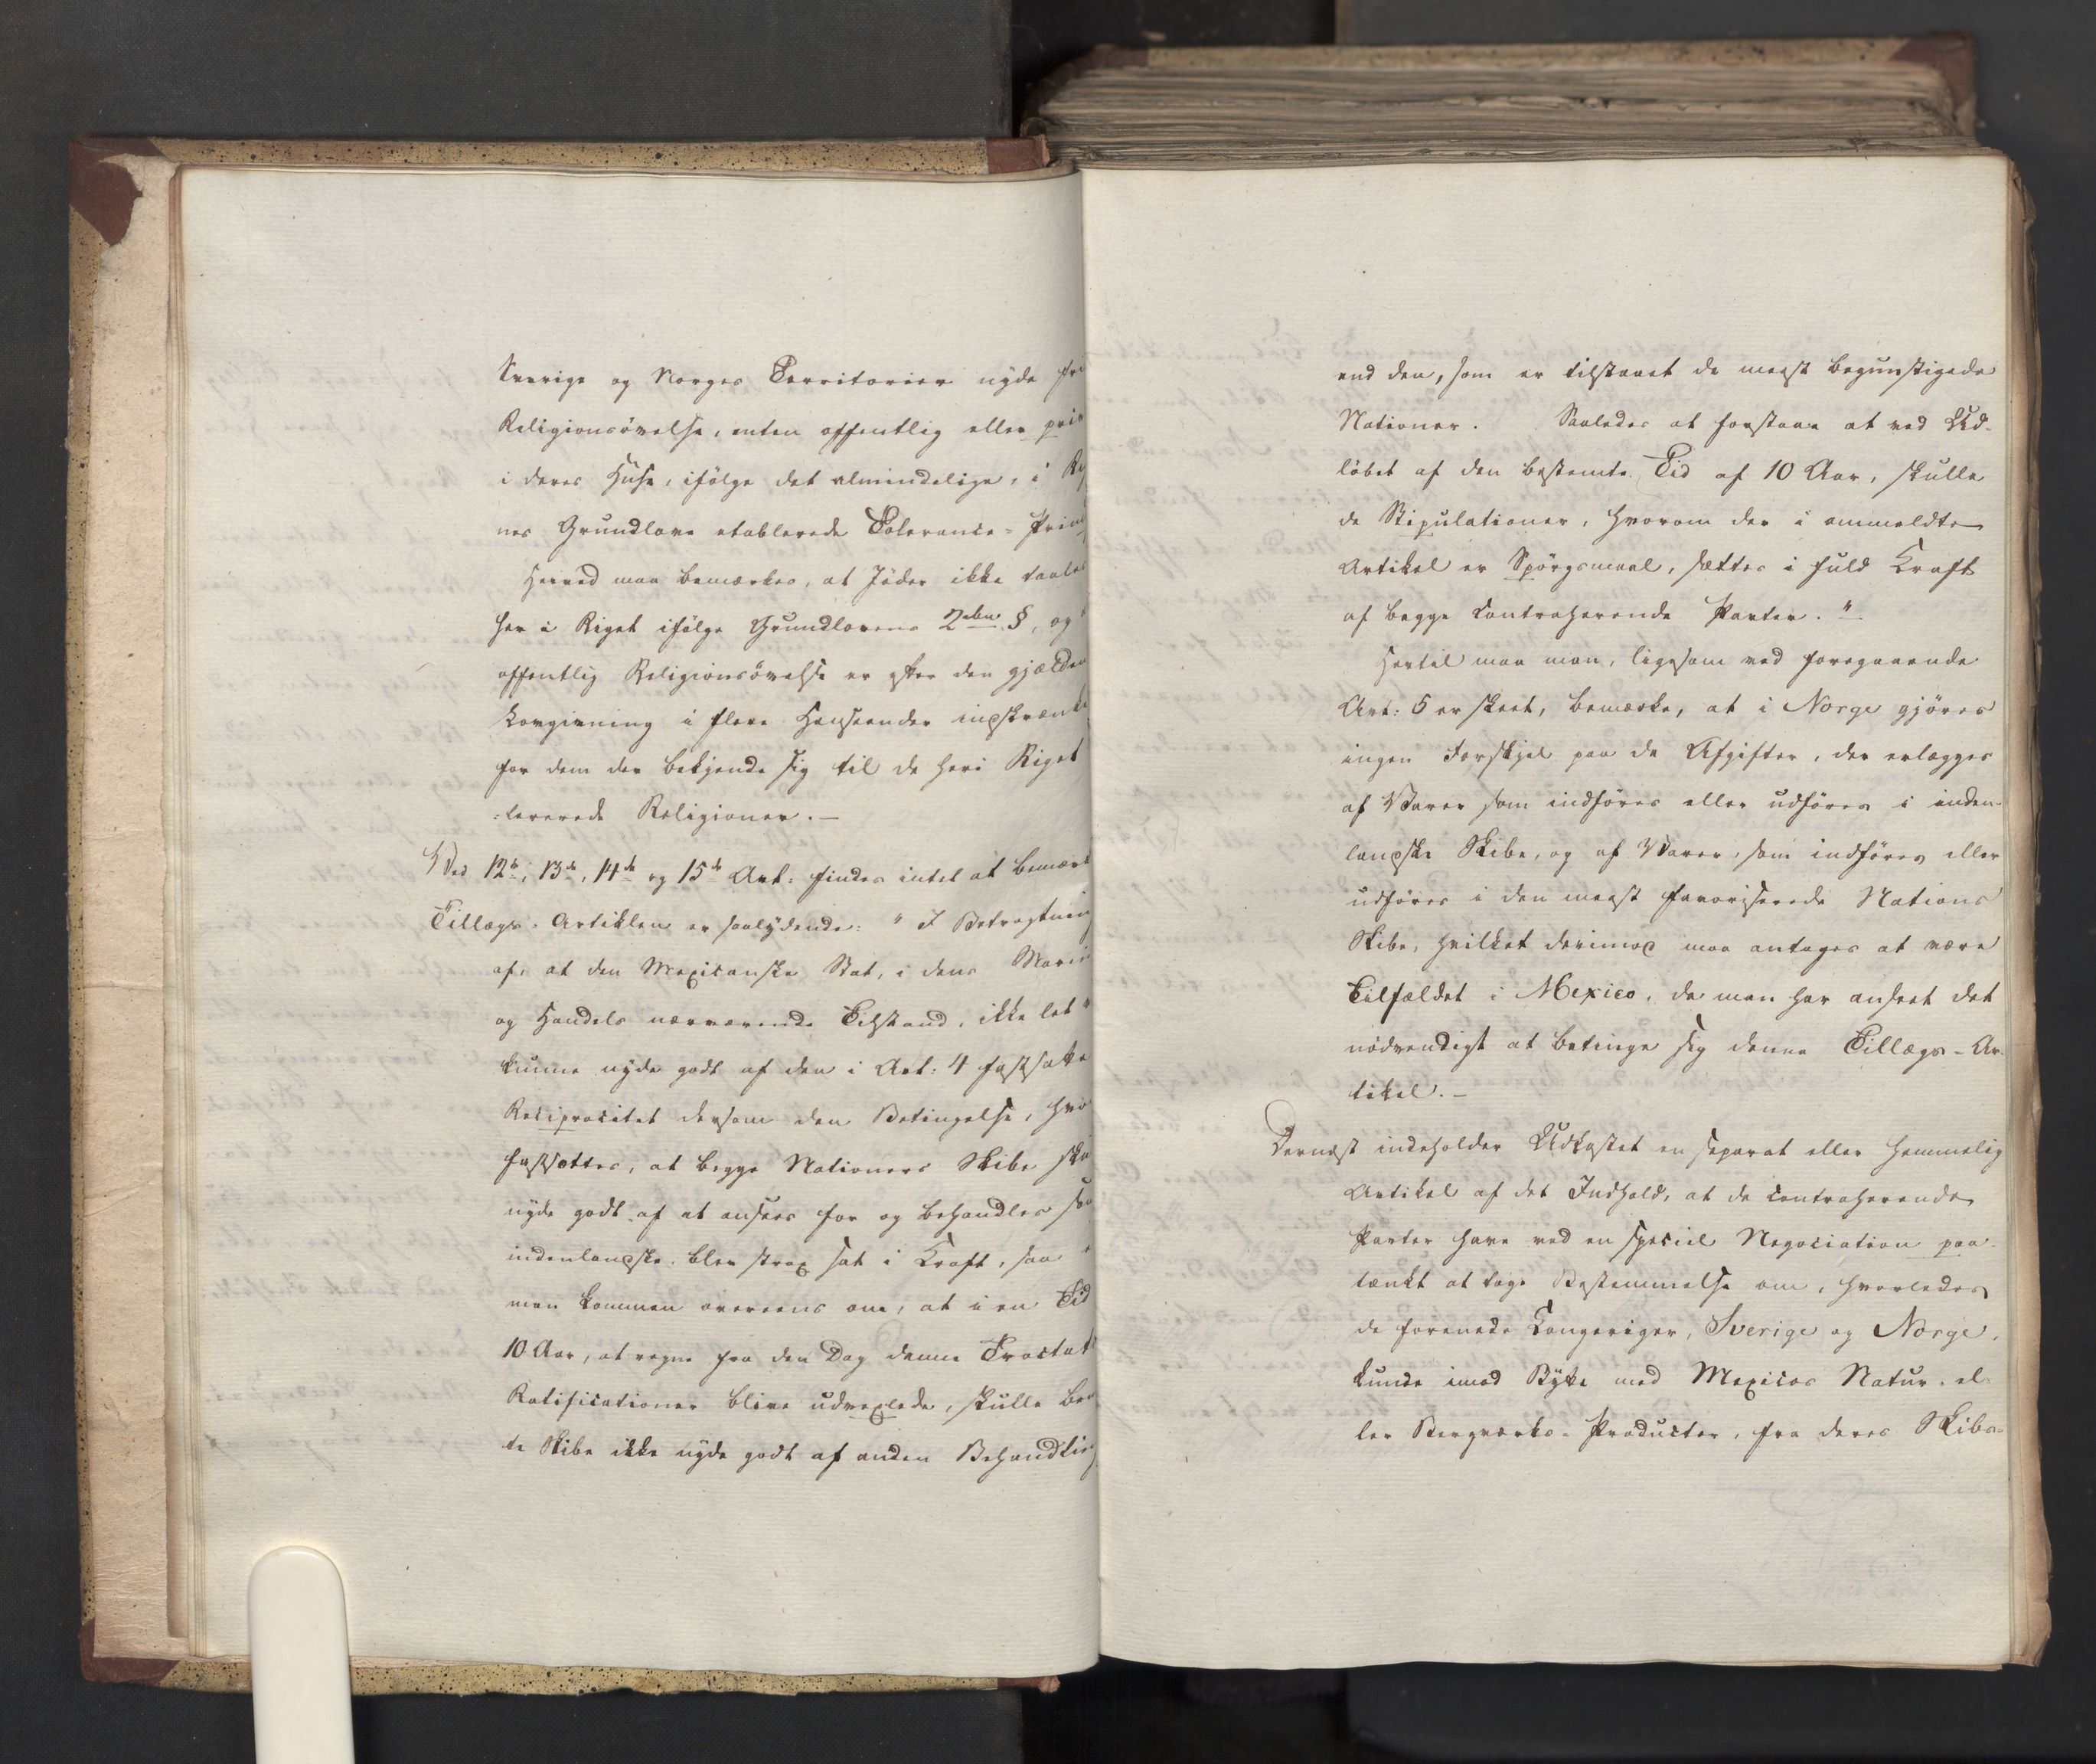 Sverige og Norges Territorier nyde fri
Religionsövelse, enten offentlig eller priv
i deres Huse, ifölge det almindelige, i Ri
nes Grundlove etablerede Tolerance-Princ
Herved maa bemærkes, at Jöder ikke taales
her i Riget ifölge Grundlovens 2den §, og
offentlig Religionsövelse er efter den gjælden
Lovgivning i flere Henseender indskrænk
for dem der bekjende sig til de her i Riget
lererede Religioner.-
Ved 12te, 13de, 14de og 15de Art: findes intet at bemærk
Tillægs-Artiklen er saalydende: "I Betragtning
af, at den Mexicanske Stat, i dens Marin
og Handels nærværende Tilstand, ikke let
kunne nyde godt af den i Art: 4 fastsatte
Reciprocitet dersom den Betingelse, hvo
fastsættes, at begge Nationers Skibe ska
nyde godt af at ansees for og behandles so
indenlandske, blev strax sat i Kraft, saa
man kommen overeens om, at i en Tid
10 Aar, at regne fra den Dag denne Tractats
Ratificationer blive udvexlede, skulle be
te Skibe ikke nyde godt af anden Behandling
end den, som er tilstaaet de meest begunstigede
Nationer. Saaledes at forstaae at ved Ud-
löbet af den bestemte Tid af 10 Aar, skulle
de Stipulationer, hvorom der i ommeldte
Artikel er Spörgsmaal, sættes i fuld Kraft
af begge Contraherende Parter."
Hertil maa man, ligesom ved foregaaende
Art: 5 er skeet, bemærke, at i Norge gjöres
ingen Forskjel paa de Afgifter, der erlægges
af Varer som indföres eller udföres i inden-
landske Skibe, og af Varer, som indföres eller
udföres i den meest favoriserede Nations
Skibe, hvilket derimod maa antages at være
Tilfældet i Mexico, da man har anseet det
nödvendigt at betinge sig denne Tillægs-Ar-
tikel.-
Dernæst indeholder Udkastet en separat eller hemmelig
Artikel af det Indhold, at de contraherende
Parter have ved en speciel Negociation paa-
tænkt at tage Bestemmelse om, hvorledes
de forenede Kongeriger, Sverige og Norge,
kunde imod Bytte med Mexicos Natur- el-
ler Bergværks-Producter, fra deres Skibs-